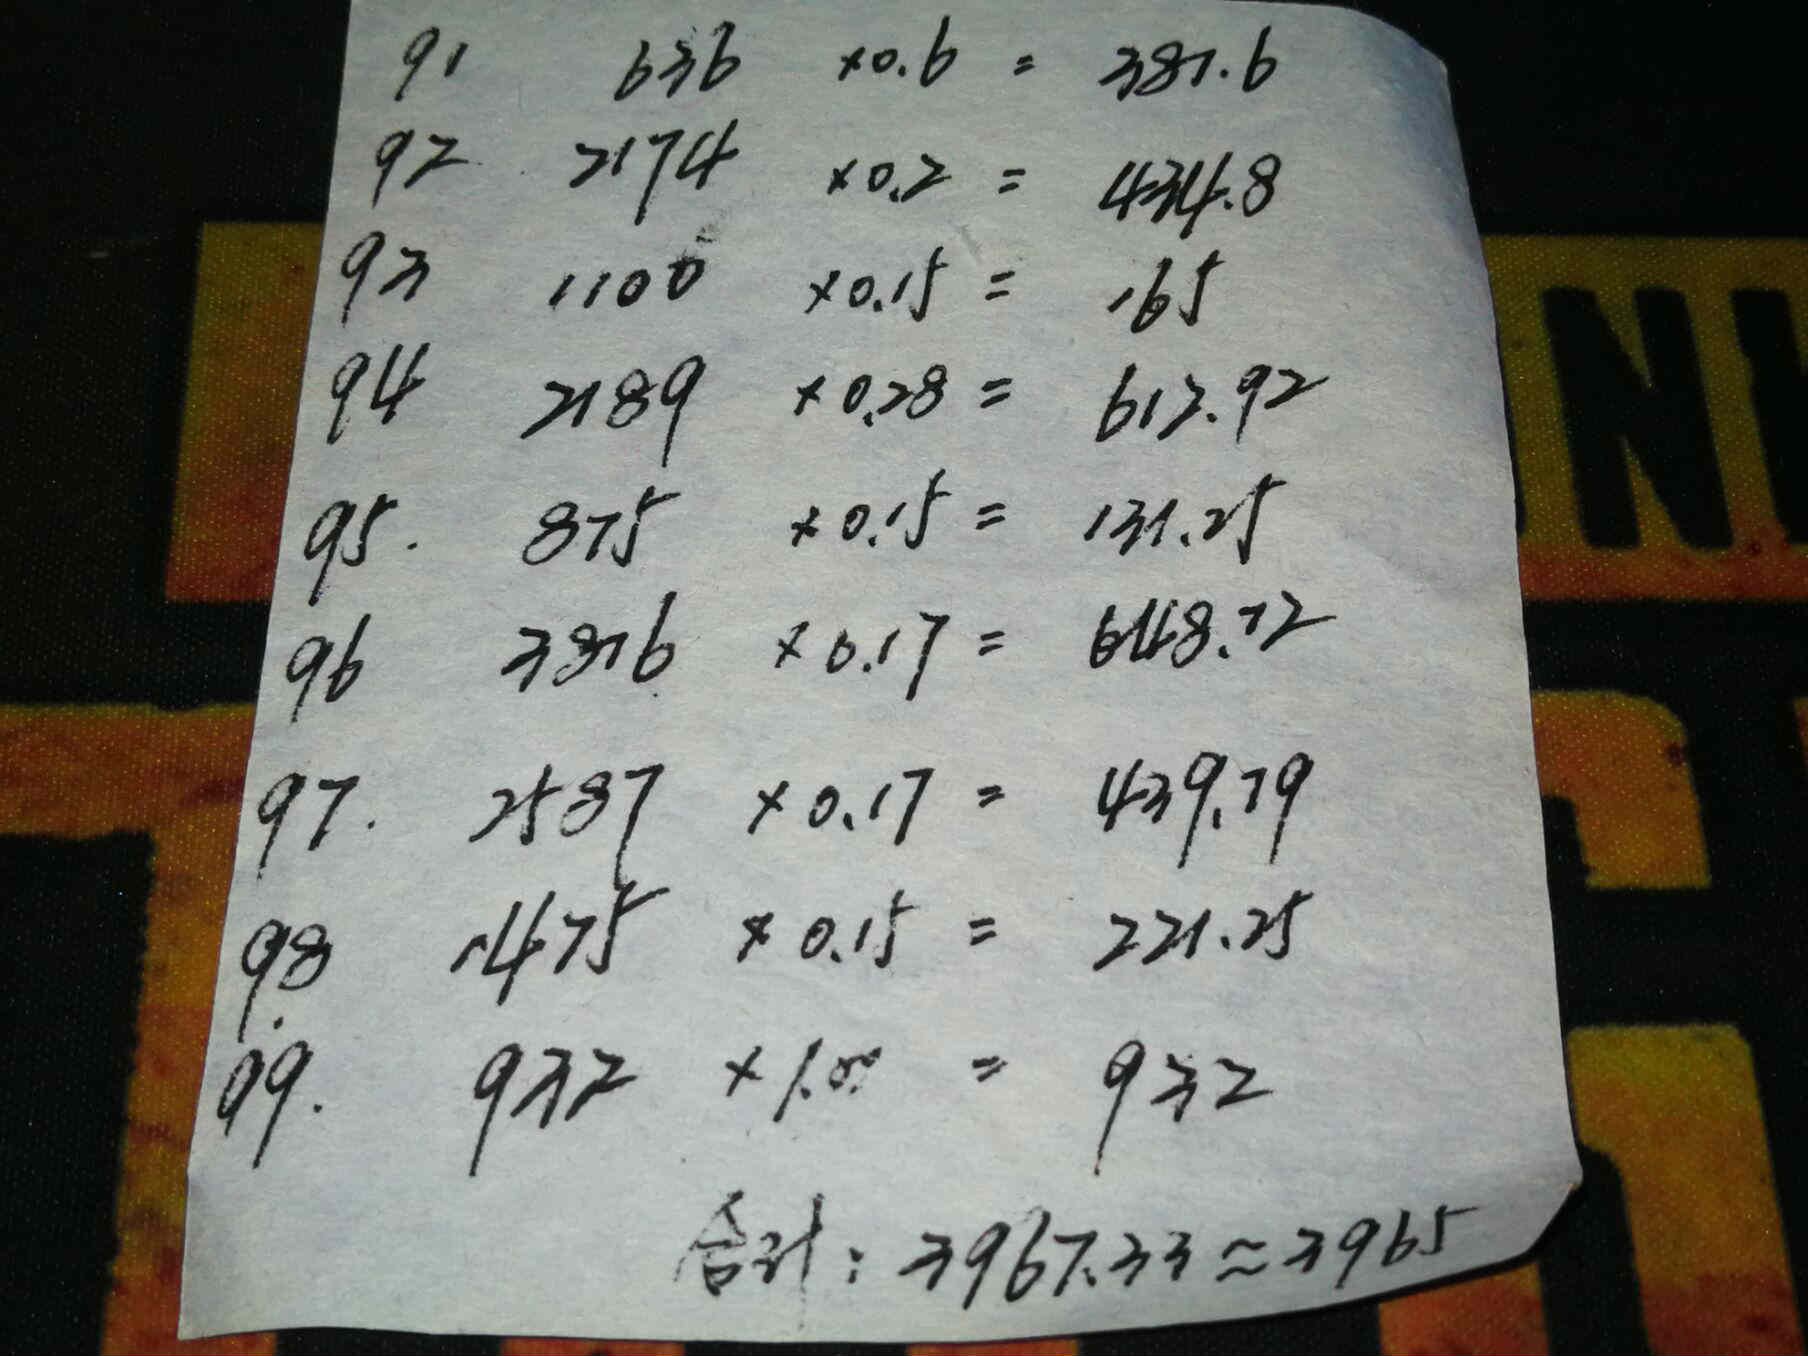 91 636 ×0.6 = 381.6
92 2174 ×0.2 = 434.8
93 1100 ×0.15 = 165
94 2189 ×0.28 = 612.92
95. 875 ×0.15 = 131.25
96 3816 ×0.17 = 648.72
97. 2587 ×0.17 = 439.79
98 1475 ×0.15 = 221.25
99. 932 ×1.00 = 932
合计: 3967.33≈3965